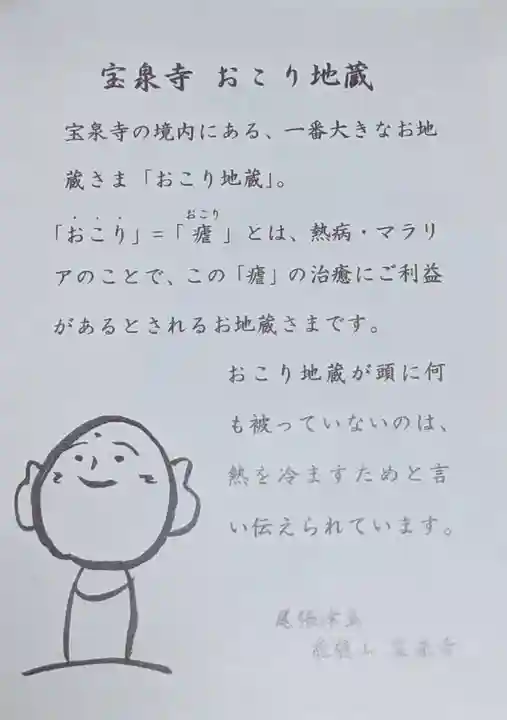 宝泉寺 おこり地蔵
宝泉寺の境内にある、一番大きなお地
蔵さま「おこり地蔵」。
おこり
「おこり」=「瘧」とは、熱病・マラリ
アのことで、この「瘧」の治癒にご利益
があるとされるお地蔵さまです。
おこり地蔵が頭に何
も被っていないのは、
熱を冷ますためと言
い伝えられています。
尾張津島
宝泉寺